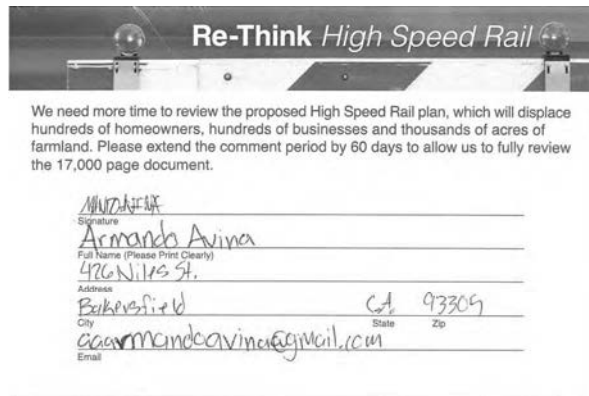 Re-Think High Speed Rail
We need more time to review the proposed High Speed Rail plan, which will displace
hundreds of homeowners, hundreds of businesses and thousands of acres of
farmland. Please extend the comment period by 60 days to allow us to fully review
the 17,000 page document.
Signature
Armando Avina
Full Name (Please Print Clearly)
426 Niles St.
Address
Bakersfield CA 93305
City State Zip
aaarmandoavina@gmail.com
Email